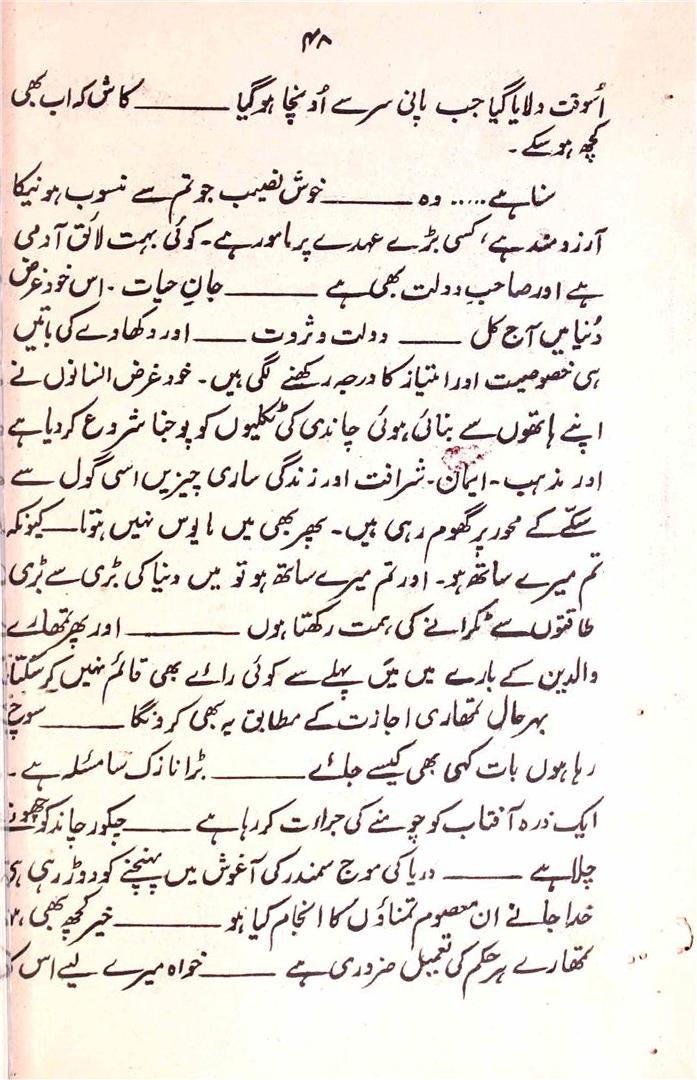 ۴۸
اُسوقت دلایا گیا جب پانی سر سے اُونچا ہوگیا ــــــــ کاش کہ اب بھی
کچھ ہو سکے۔
سنا ہے ..... وہ ــــــــ خوش نصیب جو تم سے منسوب ہونیکا
آرزو مند ہے، کسی بڑے عہدے پر مامور ہے۔ کوئی بہت لائق آدمی
ہے اور صاحبِ دولت بھی ہے ــــــــ جانِ حیات ۔ اس خود غرض
دُنیا میں آج کل ــــــــ دولت و ثروت ــــــــ اور دکھاوے کی باتیں
ہی خصوصیت اور امتیاز کا درجہ رکھنے لگی ہیں۔ خود غرض انسانوں نے
اپنے ہاتھوں سے بنائی ہوئی چاندی کی ٹکلیوں کو پوجنا شروع کردیا ہے
اور مذہب ۔ ایمان ۔ شرافت اور زندگی ساری چیزیں اسی گول سے
سکّے کے محور پر گھوم رہی ہیں۔ پھر بھی میں مایوس نہیں ہوتا ــــــــ کیونکہ
تم میرے ساتھ ہو۔ اور تم میرے ساتھ ہو تو میں دنیا کی بڑی سے بڑی
طاقتوں سے ٹکرانے کی ہمت رکھتا ہوں ــــــــ اور پھر تمھارے
والدین کے بارے میں میں پہلے سے کوئی رائے بھی قائم نہیں کرسکتا
بہرحال تمھاری اجازت کے مطابق یہ بھی کرونگا ــــــــ سوچ
رہا ہوں بات کہی بھی کیسے جائے ــــــــ بڑا نازک سا مسئلہ ہے ۔
ایک ذرہ آفتاب کو چومنے کی جراءت کر رہا ہے ــــــــ چکور چاند کو چھونے
چلا ہے ــــــــ دریا کی موج سمندر کی آغوش میں پہنچنے کو دوڑ رہی ہے
خدا جانے ان معصوم تمناؤں کا انجام کیا ہو ــــــــ خیر کچھ بھی ہو،
تمھارے ہر حکم کی تعمیل ضروری ہے ــــــــ خواہ میرے لیے اس